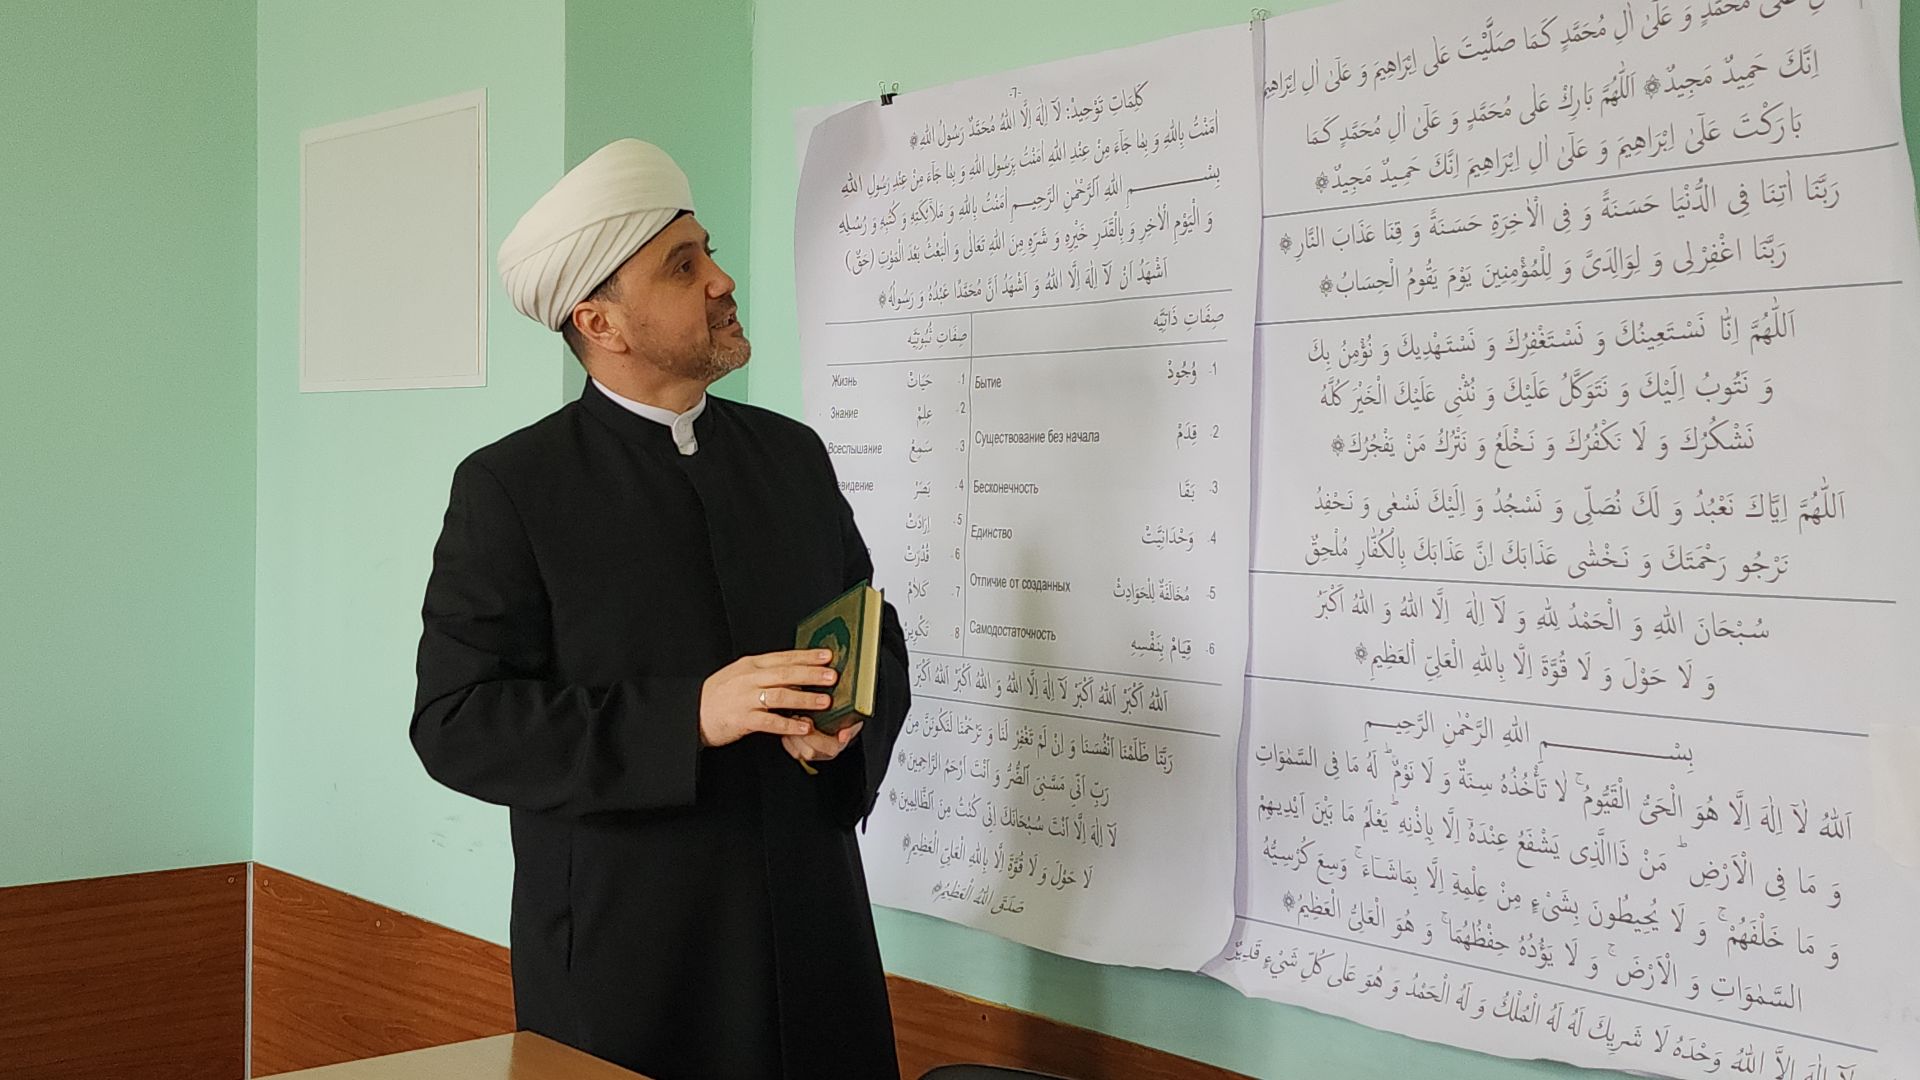 -7-
كَلِمَاتِ تَوْحِيدْ: لَآ اِلٰهَ اِلَّا اللهُ مُحَمَّدٌ رَسُولُ اللهِ
اٰمَنْتُ بِاللهِ وَ بِمَا جَآءَ مِنْ عِنْدِ اللهِ اٰمَنْتُ بِرَسُولِ اللهِ وَ بِمَا جَآءَ مِنْ عِنْدِ رَسُولِ اللهِ
بِسْــــمِ اللهِ الرَّحْمٰنِ الرَّحِيـــمِ اٰمَنْتُ بِاللهِ وَ مَلَآئِكَتِهِ وَ كُتُبِهِ وَ رُسُلِهِ
وَ الْيَوْمِ الْاٰخِرِ وَ بِالْقَدَرِ خَيْرِهِ وَ شَرِّهِ مِنَ اللهِ تَعَالٰى وَ الْبَعْثُ بَعْدَ الْمَوْتِ (حَقٌّ)
اَشْهَدُ اَنْ لَآ اِلٰهَ اِلَّا اللهُ وَ اَشْهَدُ اَنَّ مُحَمَّدًا عَبْدُهُ وَ رَسُولُهُ
صِفَاتِ ذَاتِيَّه
1- وُجُودْ Бытие
2- قِدَمْ Существование без начала
3- بَقَا Бесконечность
4- وَحْدَانِيَّتْ Единство
5- مُخَالَفَةٌ لِلْحَوَادِثْ Отличие от созданных
6- قِيَامْ بِنَفْسِهِ Самодостаточность
صِفَاتِ ثُبُوتِيَّه
1- حَيَاتْ Жизнь
2- عِلِمْ Знание
3- سَمِعْ Всеслышание
4- بَصَرْ евидение
5- اِرَادَتْ
6- قُدْرَتْ
7- كَلَامْ
8- تَكْوِينْ
اَللهُ اَكْبَرُ اَللهُ اَكْبَرْ لَآ اِلٰهَ اِلَّا اللهُ وَ اللهُ اَكْبَرُ اَللهُ اَكْبَرْ
رَبَّنَا ظَلَمْنَا اَنْفُسَنَا وَ اِنْ لَمْ تَغْفِرْ لَنَا وَ تَرْحَمْنَا لَنَكُونَنَّ مِنَ
رَبِّ اَنِّي مَسَّنِيَ الضُّرُّ وَ اَنْتَ اَرْحَمُ الرَّاحِمِينَ
لَآ اِلٰهَ اِلَّا اَنْتَ سُبْحَانَكَ اِنِّي كُنْتُ مِنَ الظَّالِمِينَ
لَا حَوْلَ وَ لَا قُوَّةَ اِلَّا بِاللهِ الْعَلِيِّ الْعَظِيمِ
صَدَقَ اللهُ الْعَظِيمُ
عَلٰى مُحَمَّدٍ وَ عَلٰٓى اٰلِ مُحَمَّدٍ كَمَا صَلَّيْتَ عَلٰى اِبْرَاهِيمَ وَ عَلٰٓى اٰلِ اِبْرَاهِيمَ
اِنَّكَ حَمِيدٌ مَجِيدٌ اَللّٰهُمَّ بَارِكْ عَلٰى مُحَمَّدٍ وَ عَلٰٓى اٰلِ مُحَمَّدٍ كَمَا
بَارَكْتَ عَلٰٓى اِبْرَاهِيمَ وَ عَلٰٓى اٰلِ اِبْرَاهِيمَ اِنَّكَ حَمِيدٌ مَجِيدٌ
رَبَّنَا اٰتِنَا فِى الدُّنْيَا حَسَنَةً وَ فِى الْاٰخِرَةِ حَسَنَةً وَ قِنَا عَذَابَ النَّارِ
رَبَّنَا اغْفِرْلِى وَ لِوَالِدَىَّ وَ لِلْمُؤْمِنِينَ يَوْمَ يَقُومُ الْحِسَابُ
اَللّٰهُمَّ اِنَّا نَسْتَعِينُكَ وَ نَسْتَغْفِرُكَ وَ نَسْتَهْدِيكَ وَ نُؤْمِنُ بِكَ
وَ نَتُوبُ اِلَيْكَ وَ نَتَوَكَّلُ عَلَيْكَ وَ نُثْنِى عَلَيْكَ الْخَيْرَ كُلَّهُ
نَشْكُرُكَ وَ لَا نَكْفُرُكَ وَ نَخْلَعُ وَ نَتْرُكُ مَنْ يَفْجُرُكَ
اَللّٰهُمَّ اِيَّاكَ نَعْبُدُ وَ لَكَ نُصَلِّى وَ نَسْجُدُ وَ اِلَيْكَ نَسْعٰى وَ نَحْفِدُ
نَرْجُو رَحْمَتَكَ وَ نَخْشٰى عَذَابَكَ اِنَّ عَذَابَكَ بِالْكُفَّارِ مُلْحِقٌ
سُبْحَانَ اللهِ وَ الْحَمْدُ لِلّٰهِ وَ لَآ اِلٰهَ اِلَّا اللهُ وَ اللهُ اَكْبَرُ
وَ لَا حَوْلَ وَ لَا قُوَّةَ اِلَّا بِاللهِ الْعَلِيِّ الْعَظِيمِ
بِسْــــمِ اللهِ الرَّحْمٰنِ الرَّحِيـــمِ
اَللهُ لَآ اِلٰهَ اِلَّا هُوَ الْحَىُّ الْقَيُّومُ لَا تَأْخُذُهُ سِنَةٌ وَ لَا نَوْمٌ لَهُ مَا فِى السَّمٰوَاتِ
وَ مَا فِى الْاَرْضِ مَنْ ذَاالَّذِى يَشْفَعُ عِنْدَهُ اِلَّا بِاِذْنِهِ يَعْلَمُ مَا بَيْنَ اَيْدِيهِمْ
وَ مَا خَلْفَهُمْ وَ لَا يُحِيطُونَ بِشَىْءٍ مِنْ عِلْمِهِ اِلَّا بِمَاشَآءَ وَسِعَ كُرْسِيُّهُ
السَّمٰوَاتِ وَ الْاَرْضَ وَ لَا يَؤُدُهُ حِفْظُهُمَا وَ هُوَ الْعَلِىُّ الْعَظِيمُ
لَآ اِلٰهَ اِلَّا اللهُ وَحْدَهُ لَا شَرِيكَ لَهُ لَهُ الْمُلْكُ وَ لَهُ الْحَمْدُ وَ هُوَ عَلٰى كُلِّ شَىْءٍ قَدِيرٌ